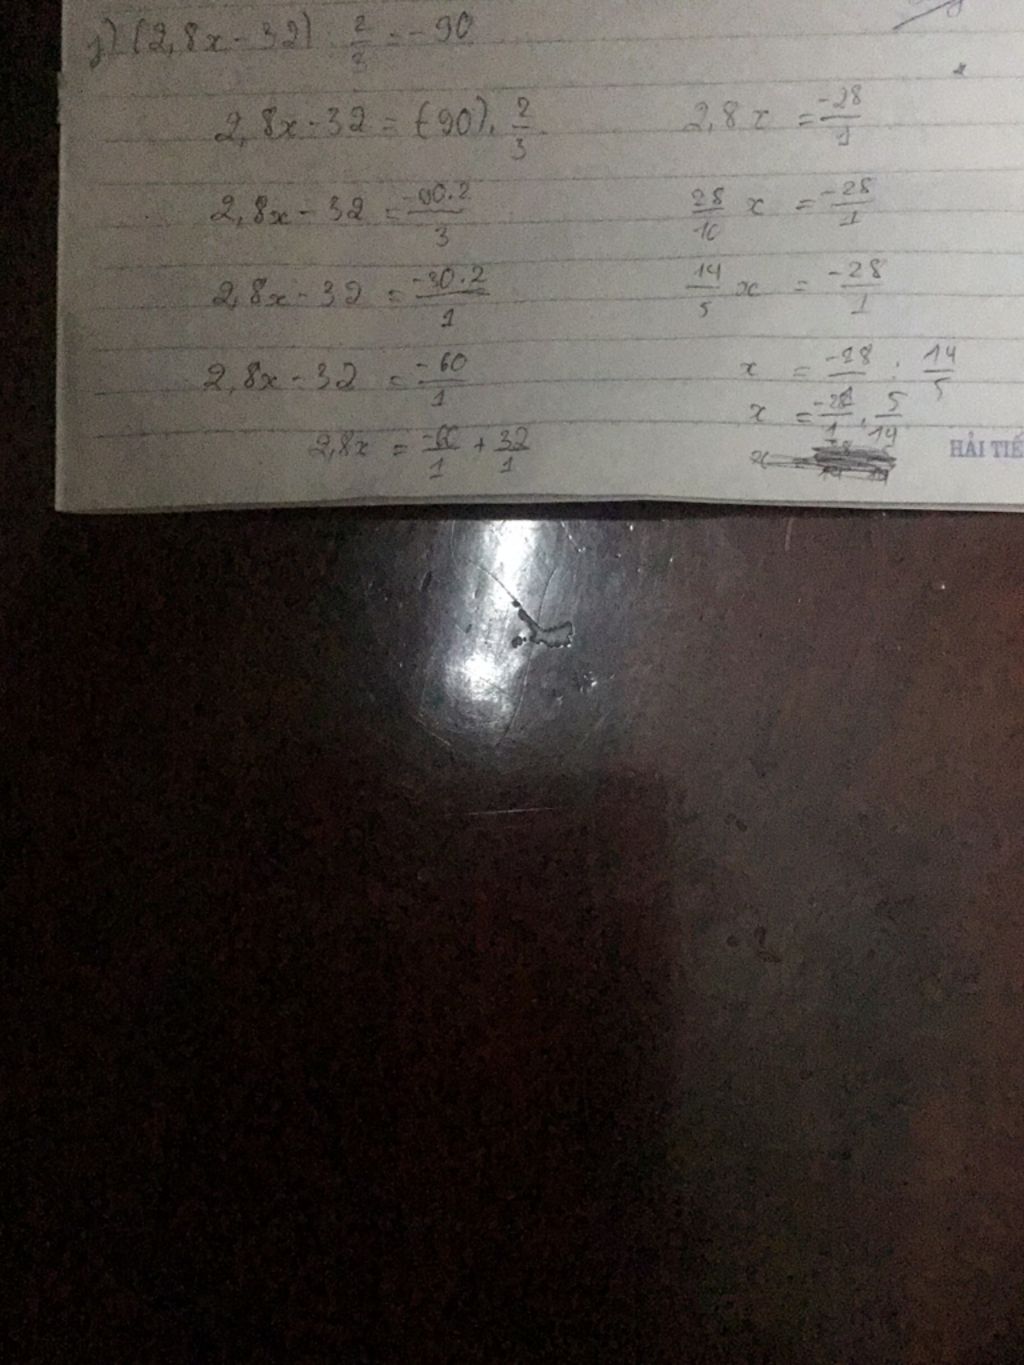 (2,8x - 32) : 2/3 = -90
2,8x - 32 = (-90) . 2/3
2,8x - 32 = -90.2/3
2,8x - 32 = -30.2/1
2,8x - 32 = -60/1
2,8x = -60/1 + 32/1
2,8x = -28/1
28/10 x = -28/1
14/5 x = -28/1
x = -28/1 : 14/5
x = -28/1 . 5/14
HẢI TIẾ